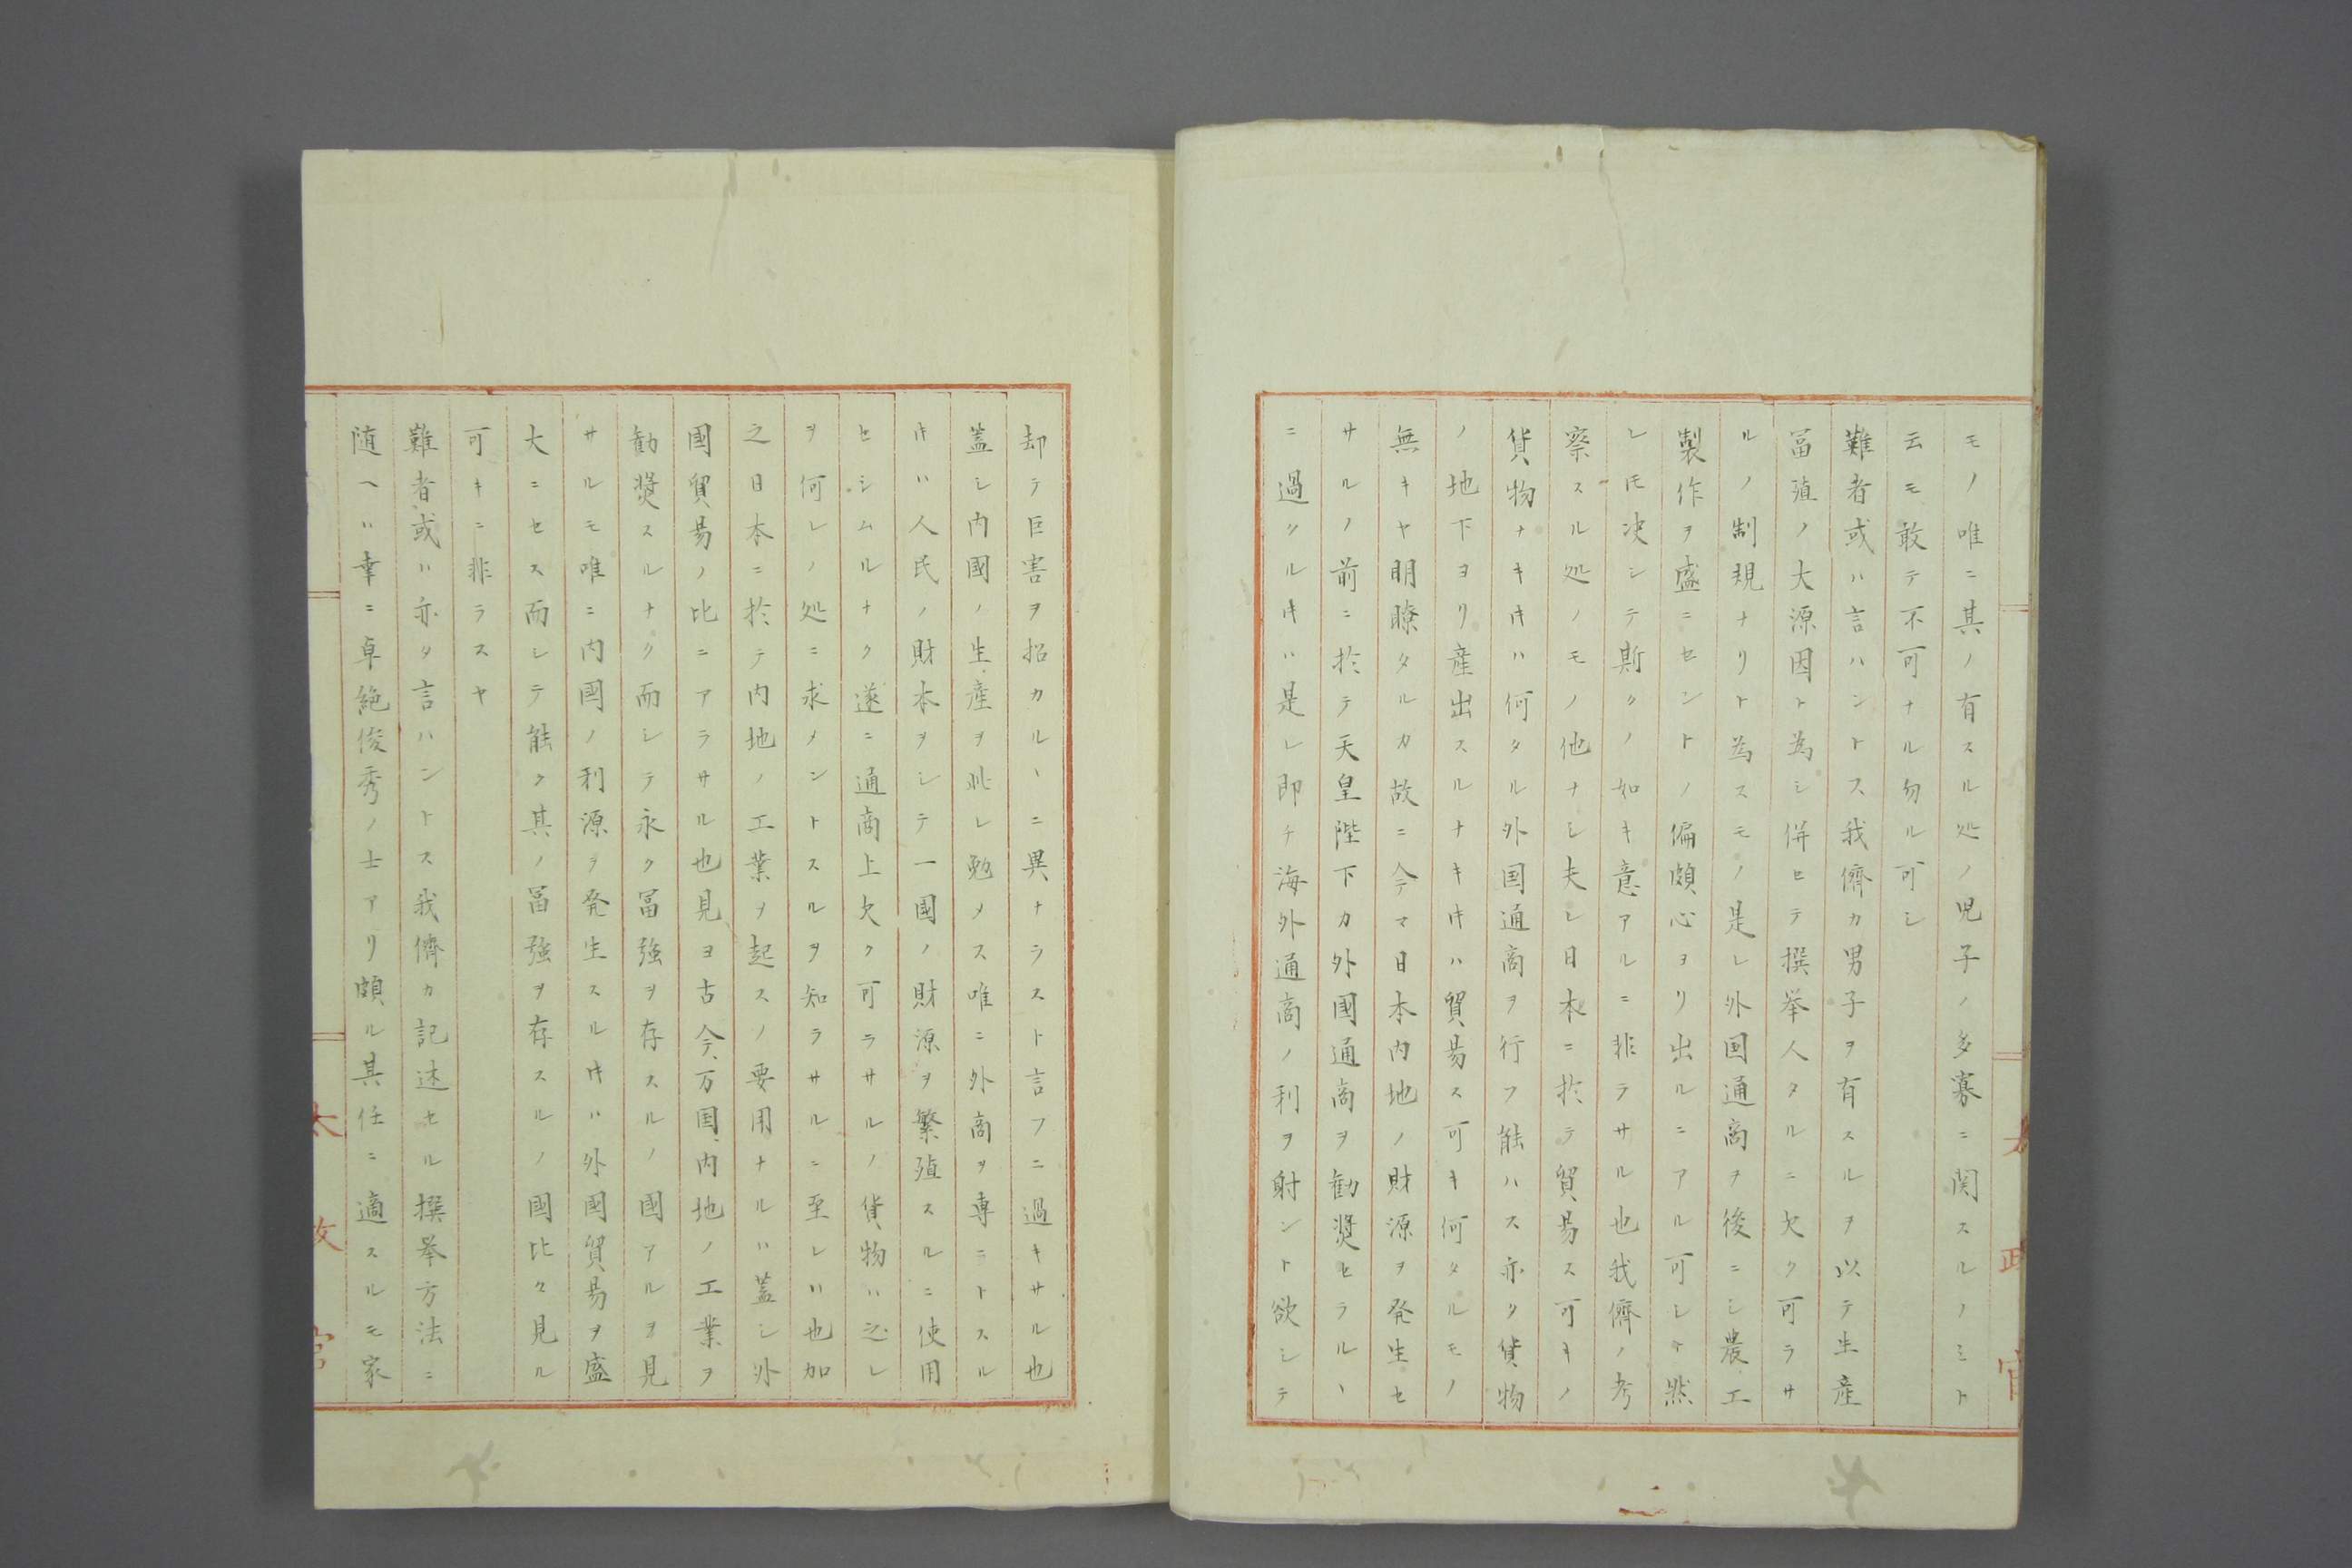 モノ唯ニ其ノ有スル処ノ児子ノ多寡ニ関スルノミト
云モ敢テ不可ナル勿ル可シ
難者或ハ言ハントス我儕カ男子ヲ有スルヲ以テ生産
冨殖ノ大源因ト為シ併セテ撰挙人タルニ欠ク可ラサ
ルノ制規ナリト為スモノ是レ外国通商ヲ後ニシ農工
製作ヲ盛ニセントノ偏頗心ヨリ出ルニアル可シト然
レ𪜈决シテ斯クノ如キ意アルニ非ラサル也我儕ノ考
察スル処ノモノ他ナシ夫レ日本ニ於テ貿易ス可キノ
貨物ナキ𬼀ハ何タル外国通商ヲ行フ能ハス亦タ貨物
ノ地下ヨリ産出スルナキ𬼀ハ貿易ス可キ何タルモノ
無キヤ明瞭タルカ故ニ今マ日本内地ノ財源ヲ発生セ
サルノ前ニ於テ天皇陛下カ外國通商ヲ勧奨セラルヽ
ニ過クル𬼀ハ是レ即チ海外通商ノ利ヲ射ント欲シテ
太政官
却テ巨害ヲ招カルヽニ異ナラスト言フニ過キサル也
蓋シ内國ノ生産ヲ此レ勉メス唯ニ外商ヲ専ニトスル
𬼀ハ人民ノ財本ヲシテ一國ノ財源ヲ繁殖スルニ使用
セシムルナク遂ニ通商上欠ク可ラサルノ貨物ハ之レ
ヲ何レノ処ニ求メントスルヲ知ラサルニ至レハ也加
之日本ニ於テ内地ノ工業ヲ起スノ要用ナルハ蓋シ外
國貿易ノ比ニアラサル也見ヨ古今万国内地ノ工業ヲ
勧奨スルナク而シテ永ク冨強ヲ存スルノ國アルヲ見
サルモ唯ニ内國ノ利源ヲ発生スル𬼀ハ外國貿易ヲ盛
大ニセス而シテ能ク其ノ冨強ヲ存スルノ國比々見ル
可キニ非ラスヤ
難者或ハ亦タ言ハントス我儕カ記述セル撰挙方法ニ
随ヘハ幸ニ卓絶俊秀ノ士アリ頗ル其任ニ適スルモ家
太政官